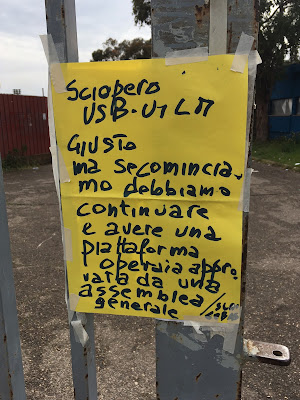 Sciopero
USB-UILM
GIUSTO
ma se comincia-
mo dobbiamo
continuare
e avere una
piattaforma
operaia appro-
vata da una
assemblea
generale